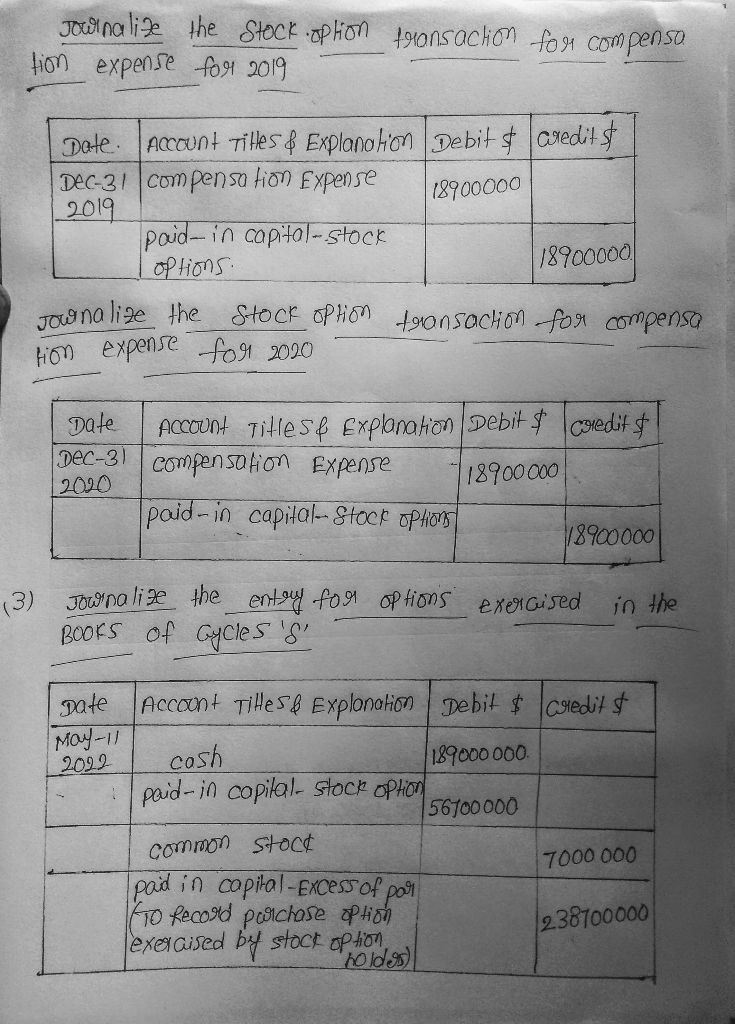 Journalize the Stock option transaction for compensa
tion expense for 2019
Date. Account Titles & Explanation Debit $ Credit $
Dec-31 compensation Expense 18900000
2019
paid-in capital-stock
options. 18900000
Journalize the Stock option transaction for compensa
tion expense for 2020
Date Account Titles & Explanation Debit $ Credit $
Dec-31 compensation Expense 18900000
2020
paid-in capital-Stock options 18900000
(3) Journalize the entry for options exercised in the
Books of Cycles 'S'
Date Account Titles & Explanation Debit $ Credit $
May-11
2022 cash 189000000.
paid-in capital-stock option 56700000
common stock 7000 000
paid in capital-Excess of par
(To Record purchase option 238700000
exercised by stock option
holders)